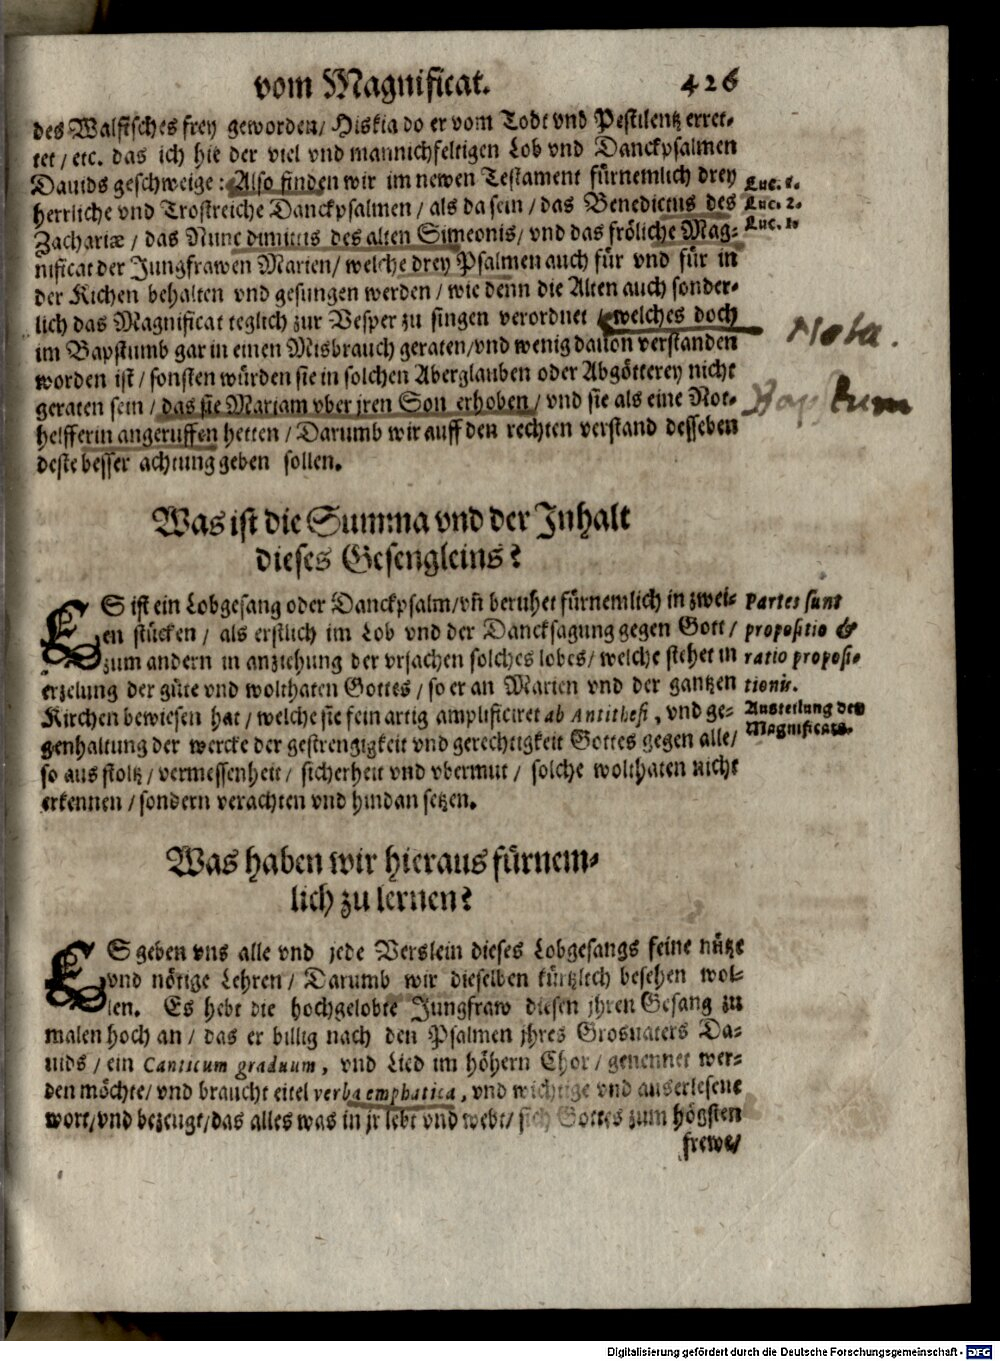 vom Magnificat. 426
des Walfisches frey geworden/ Hiskia do er vom Todt vnd Pestilentz erret-
tet/ etc. das ich hie der viel vnd mannichfeltigen Lob vnd Danckpsalmen
Dauids geschweige: Also finden wir im newen Testament fürnemlich drey
herrliche vnd Trostreiche Danckpsalmen/ als da sein/ das Benedictus des
Zachariæ/ das Nunc dimittis des alten Simeonis/ vnd das fröliche Mag-
nificat der Jungfrawen Marien/ welche drey Psalmen auch für vnd für in
der Kichen behalten vnd gesungen werden/ wie denn die Alten auch sonder-
lich das Magnificat teglich zur Vesper zu singen verordnet/ welches doch
im Bapstumb gar in einen Misbrauch geraten/ vnd wenig dauon verstanden
worden ist/ sonsten würden sie in solchen Aberglauben oder Abgötterey nicht
geraten sein/ das sie Mariam vber jren Son erhoben/ vnd sie als eine Not-
helfferin angeruffen hetten/ Darumb wir auff den rechten verstand desseben
deste besser achtung geben sollen.
Luc. 1.
Luc. 2.
Luc. 1.
Nota.
Bapstum
Was ist die Summa vnd der Inhalt
dieses Gesengleins?
ES ist ein Lobgesang oder Danckpsalm/ vñ beruhet fürnemlich in zwei-
en stücken/ als erstlich im Lob vnd der Dancksagung gegen Gott/
zum andern in anziehung der vrsachen solches lobes/ welche stehet in
erzelung der güte vnd wolthaten Gottes/ so er an Marien vnd der gantzen
Kirchen bewiesen hat/ welche sie fein artig amplificiret ab Antithesi, vnd ge-
genhaltung der wercke der gestrengigkeit vnd gerechtigkeit Gottes gegen alle/
so aus stoltz/ vermessenheit/ sicherheit vnd vbermut/ solche wolthaten nicht
erkennen/ sondern verachten vnd hindan setzen.
Partes sunt
propositio &
ratio proposi-
tionis.
Austeilung des
Magnificats.
Was haben wir hieraus fürnem-
lich zu lernen?
ES geben vns alle vnd jede Verslein dieses Lobgesangs feine nütze
vnd nötige Lehren/ Darumb wir dieselben kürtzlich besehen wol-
len. Es hebt die hochgelobte Jungfraw diesen jhren Gesang zu
malen hoch an/ das er billig nach den Psalmen jhres Grosuaters Da-
uids/ ein Canticum graduum, vnd Lied im höhern Chor/ genennet wer-
den möchte/ vnd braucht eitel verba emphatica, vnd wichtige vnd auserlesene
wort/ vnd bezeugt/ das alles was in jr lebt vnd webt/ sich Gottes zum högsten
frewe/
Digitalisierung gefördert durch die Deutsche Forschungsgemeinschaft - DFG